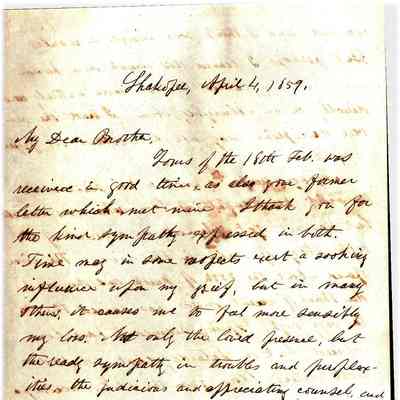 Shakopee, April 4, 1859.
My Dear Brother,
Yours of the 18th Feb. was
received in good time, as also your former
letter which met mine. I thank you for
the kind sympathy expressed in both.
Time may in some respects exert a soothing
influence upon my grief, but in many
others, it causes me to feel more sensibly
my loss. Not only the loved presence, but
the ready sympathy in troubles and perplex-
ities, the judicious and appreciating counsel, and